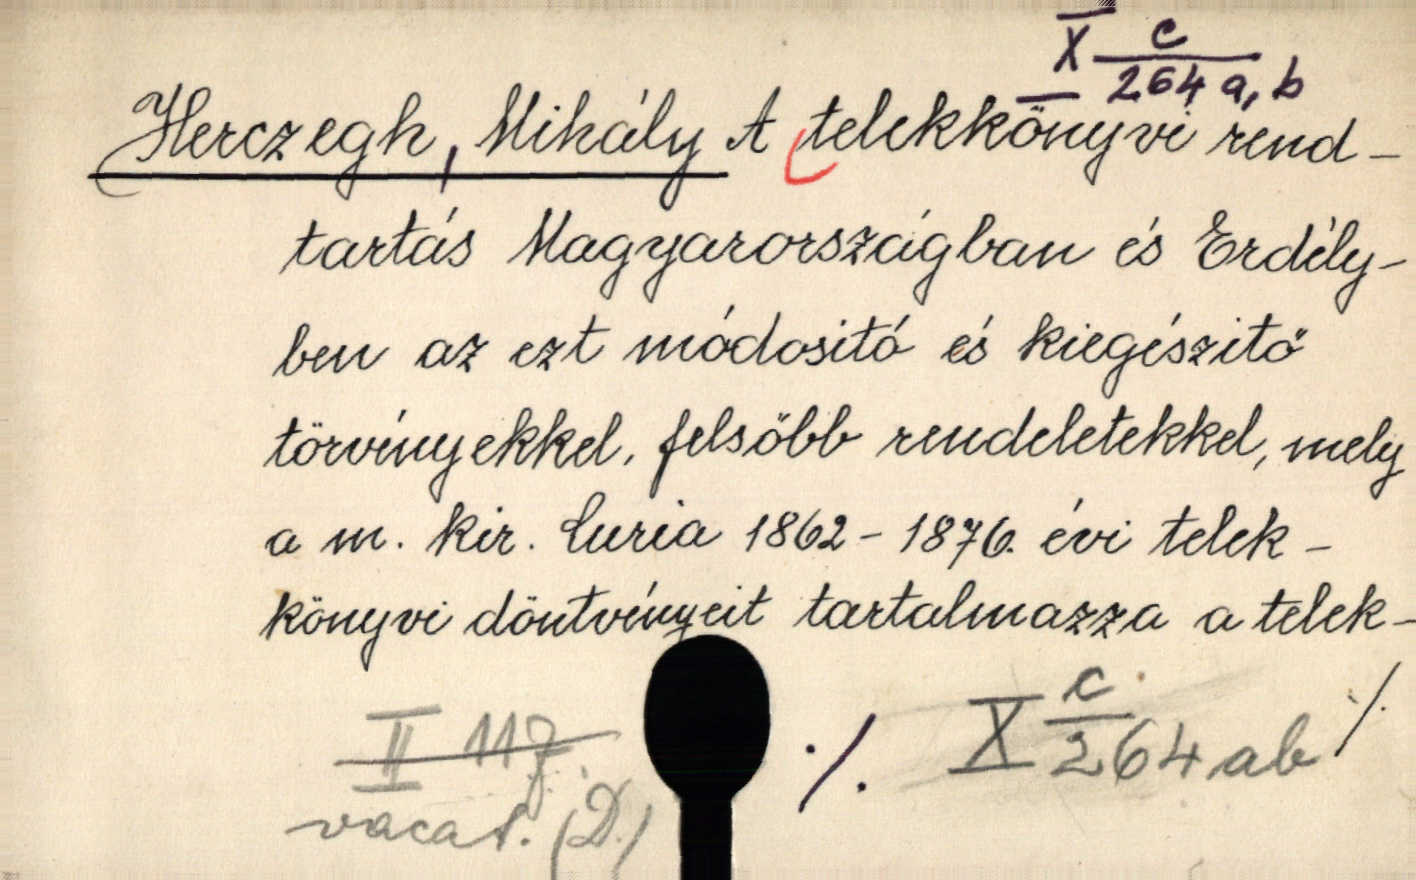 X c/264 a, b
Herczegh, Mihály A telekkönyvi rend-
tartás Magyarországban és Erdély-
ben az ezt módositó és kiegészitő
törvényekkel, felsőbb rendeletekkel, mely
a m. kir. Curia 1862-1876. évi telek-
könyvi döntvényeit tartalmazza a telek-
II 117. ./. X c/264 ab ./.
vacat. (D.)